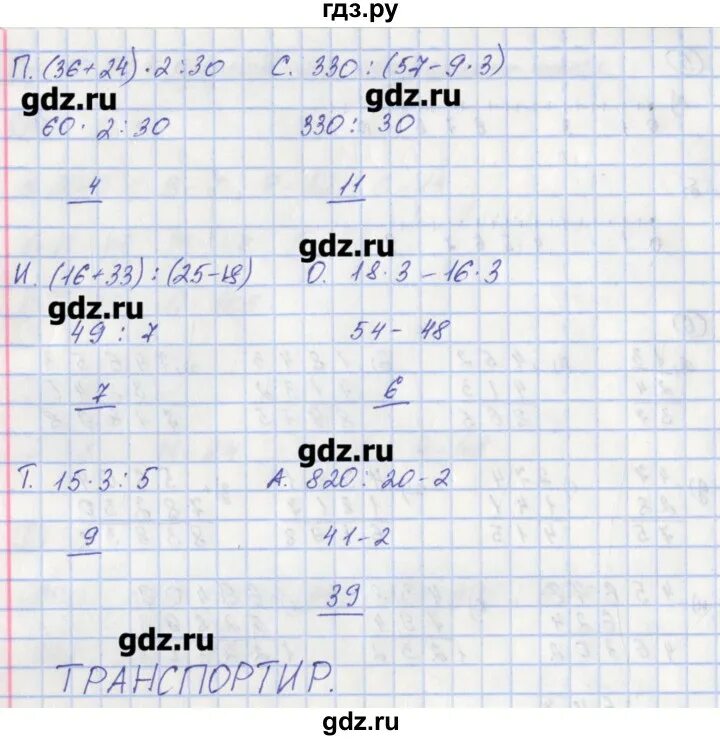 гдз.ру
П. (36+24)·2:30 С. 330:(57-9·3)
gdz.ru gdz.ru
60·2:30 330:30
4 11
gdz.ru
И. (16+33):(25-18) О. 18·3-16·3
gdz.ru
49:7 54-48
7 6
gdz.ru
Т. 15·3:5 А. 820:20-2
9 41-2
39
gdz.ru
ТРАНСПОРТИР.
gdz.ru